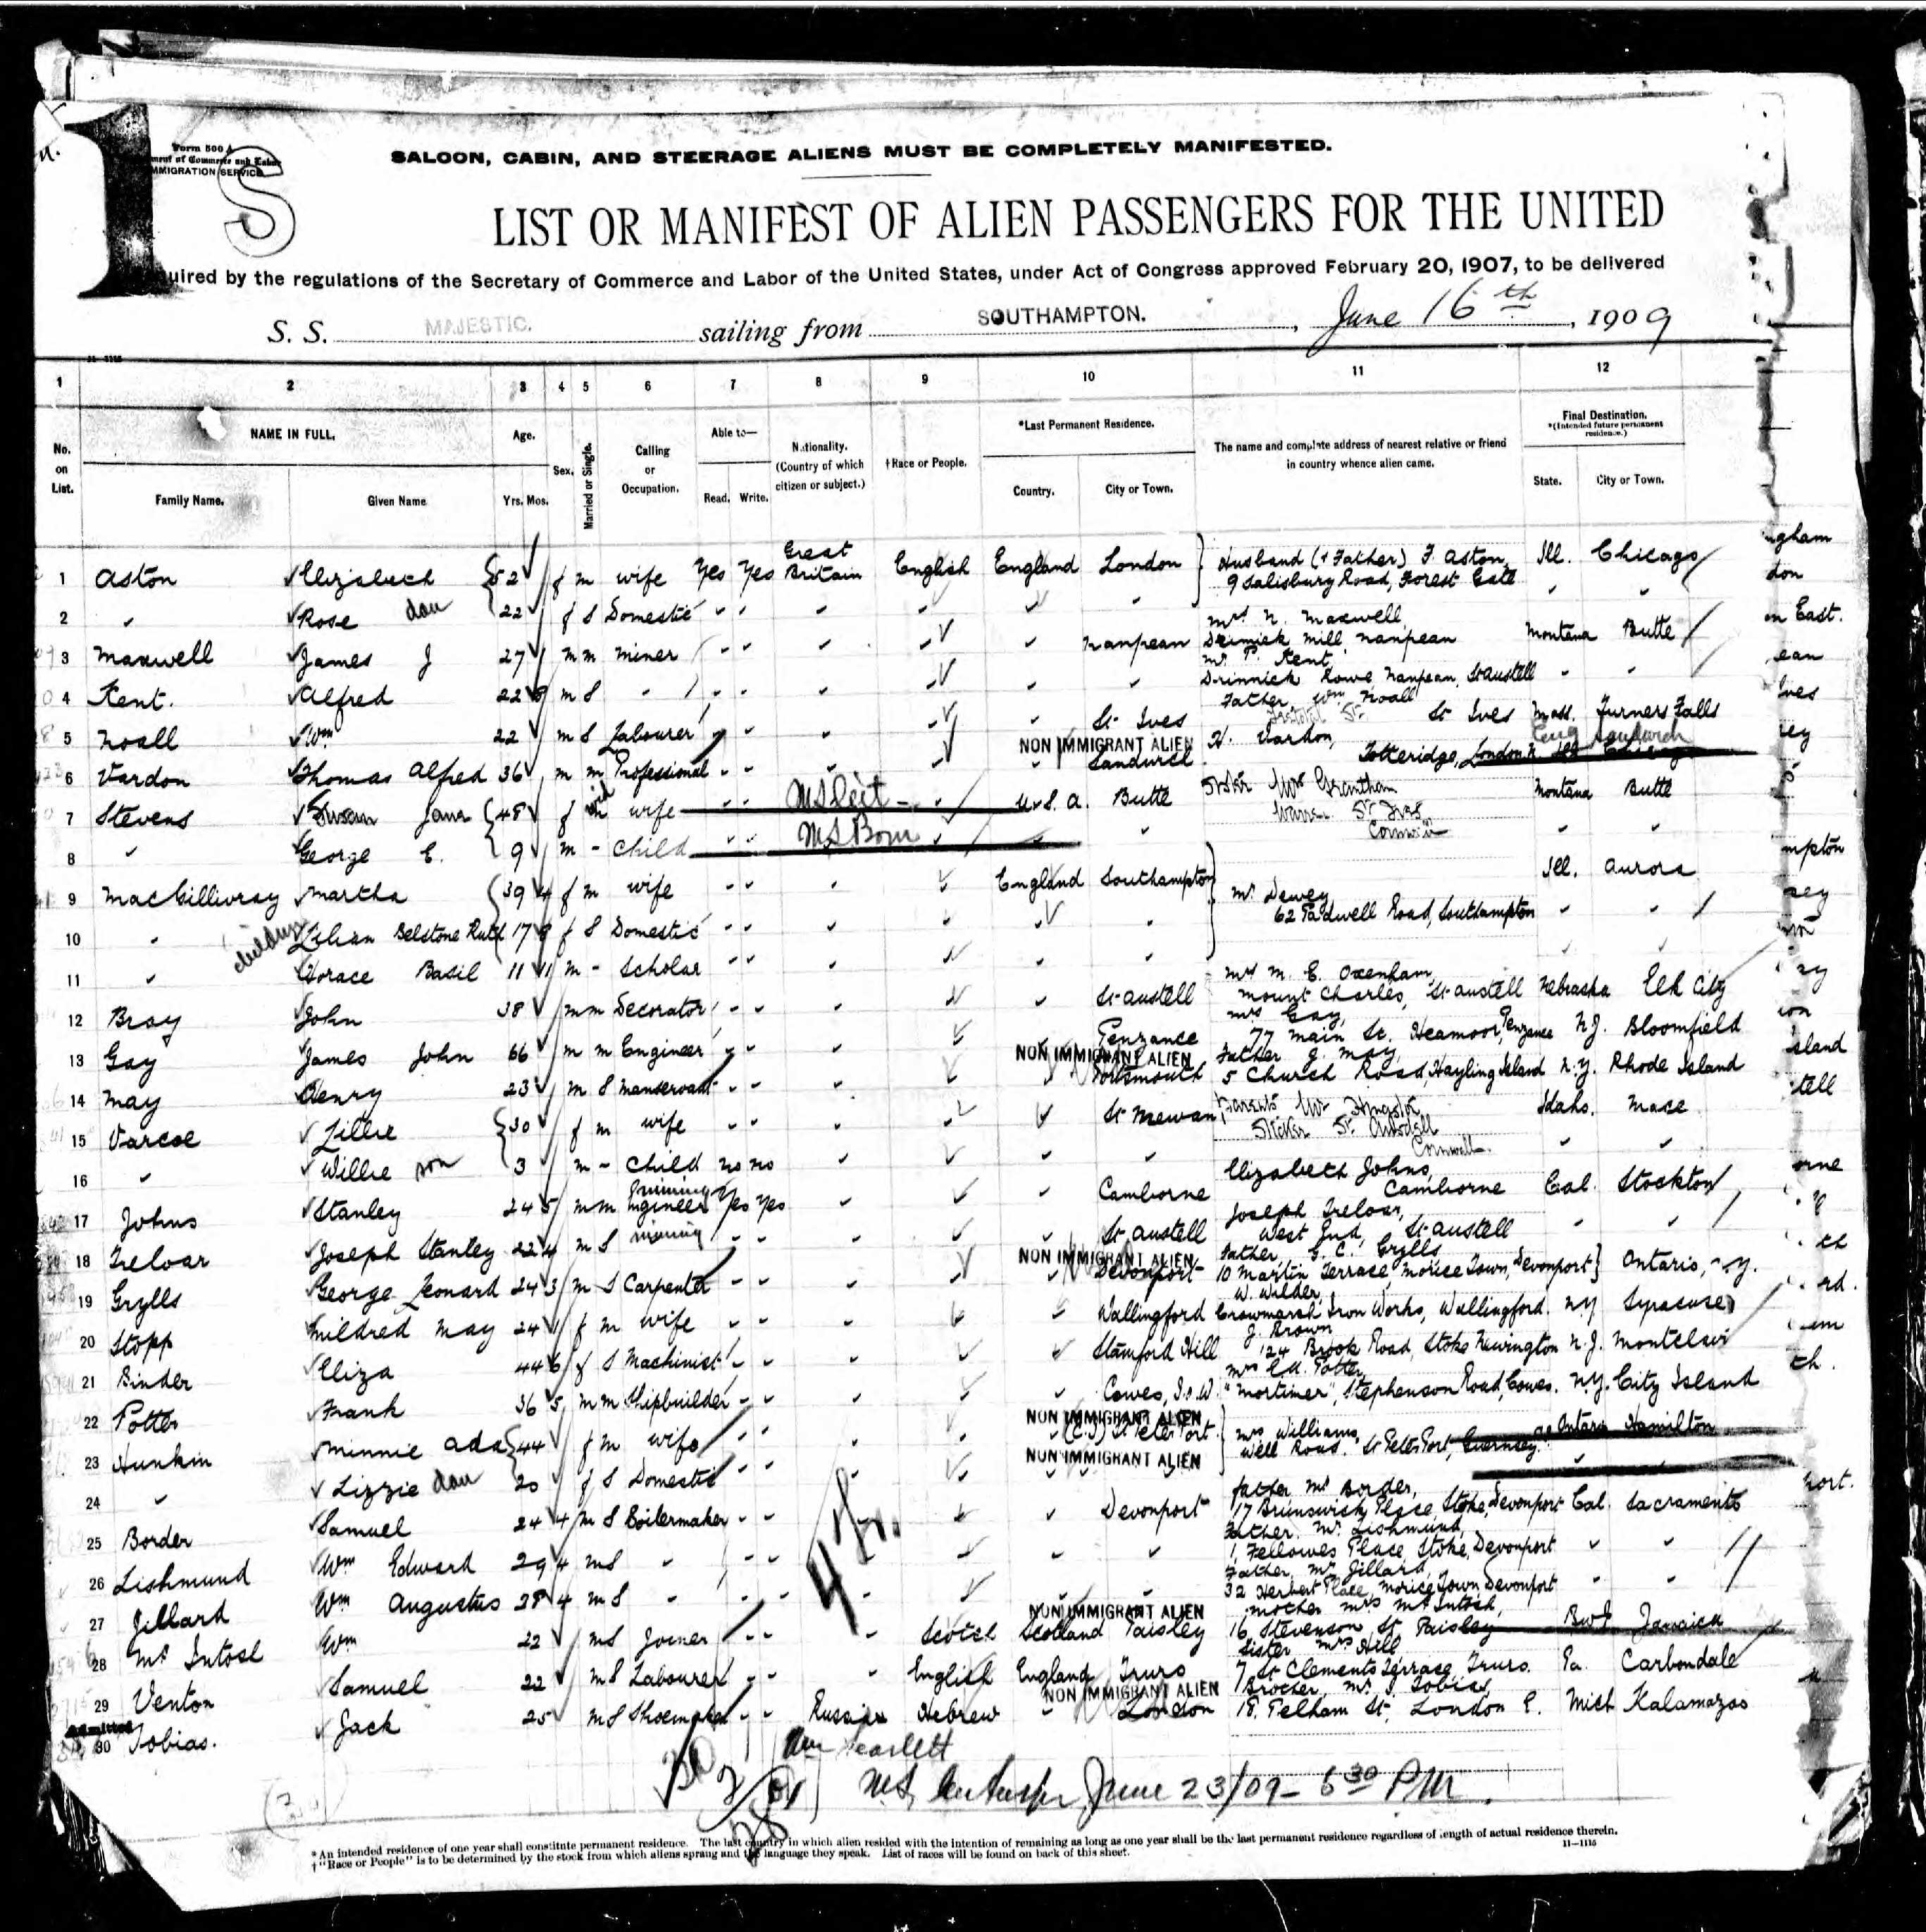 Form 500 A
IMMIGRATION SERVICE
1
S
SALOON, CABIN, AND STEERAGE ALIENS MUST BE COMPLETELY MANIFESTED.
LIST OR MANIFEST OF ALIEN PASSENGERS FOR THE UNITED
uired by the regulations of the Secretary of Commerce and Labor of the United States, under Act of Congress approved February 20, 1907, to be delivered
S. S. MAJESTIC. sailing from SOUTHAMPTON. , June 16th , 1909
1 2 3 4 5 6 7 8 9 10 11 12
No. on List. NAME IN FULL. Age. Sex. Married or Single. Calling or Occupation. Able to— Nationality. (Country of which citizen or subject.) †Race or People. *Last Permanent Residence. The name and complete address of nearest relative or friend in country whence alien came. Final Destination. *(Intended future permanent residence.)
Family Name. Given Name Yrs. Mos. Read. Write. Country. City or Town. State. City or Town.
1 Aston Elizabeth 52 f m wife Yes Yes Great Britain English England London Husband (+ Father) F. Aston, 9 Salisbury Road, Forest Gate Ill. Chicago
2 " Rose dau 22 f S Domestic " " " " " " " "
3 Maxwell James J 27 m m miner " " " " " Nanpean Mrs N. Maxwell, Drinnick Mill, Nanpean Montana Butte
4 Kent. Alfred 22 8 m S " " " " " " " Mr P. Kent, Drinnick Rowe Nanpean, St Austell " "
5 Noall Wm 22 m S Labourer " " " " " St Ives Father Wm Noall St Ives Mass. Turners Falls
6 Vardon Thomas Alfred 36 m m Professional " " " " " NON IMMIGRANT ALIEN Sandwich H. Vardon, Totteridge, London N. Eng Sandwich
7 Stevens Susan Jane 48 f wid wife " " " U.S.A. Butte Sister Mrs Grantham St Ives Cornwall Montana Butte
8 " George C. 9 m - child " " US Born " " " " "
9 MacGillivray Martha 39 4 f m wife " " " " England Southampton Mr Dewey 62 Padwell Road, Southampton Ill. Aurora
10 " children Lilian Belstone Ruth 17 8 f S Domestic " " " " " " " "
11 " Horace Basil 11 11 m - Scholar " " " " " " " "
12 Bray John 38 m m Decorator " " " " " St Austell Mrs M. E. Oxenham, Mount Charles, St Austell Nebraska Elk City
13 Gay James John 66 m m Engineer " " " " " Penzance Mrs Gay, 77 Main St. Heamoor, Penzance N.J. Bloomfield
14 May Henry 23 m S Manservant " " " " " NON IMMIGRANT ALIEN Portsmouth Father J. May, 5 Church Road, Hayling Island N.Y. Rhode Island
15 Varcoe Lillie 30 f m wife " " " " " St Mewan Parents Cornwall Idaho. Mace
16 " Willie son 3 m - child no no " " " " " "
17 Johns Stanley 24 5 m m mining Engineer Yes Yes " " " Camborne Elizabeth Johns, Camborne Cal. Stockton
18 Treloar Joseph Stanley 22 4 m S mining " " " " " St Austell Joseph Treloar, West End, St Austell " "
19 Grylls George Leonard 24 3 m S Carpenter " " " " " NON IMMIGRANT ALIEN Devonport Father, G. C. Grylls 10 Martin Terrace, Morice Town, Devonport Ontario, N.Y.
20 Stopp Mildred May 24 f m wife " " " " " Wallingford W. Wilder, Crowmarsh Iron Works, Wallingford. N.Y. Syracuse
21 Binder Eliza 44 6 f S Machinist " " " " " Stamford Hill J. Brown 124 Brook Road, Stoke Newington N.J. Montclair
22 Potter Frank 36 5 m m Shipbuilder " " " " " Cowes, I.o.W. Mrs Ed. Potter "Mortimer", Stephenson Road, Cowes. N.Y. City Island
23 Hunkin Minnie Ada 44 f m wife " " " " " NON IMMIGRANT ALIEN (C.I) St Peter Port Mrs Williams, Well Road. St Peter Port, Guernsey. Ontario Hamilton
24 " Lizzie dau 20 f S Domestic " " " " NON IMMIGRANT ALIEN " " "
25 Border Samuel 24 4 m S Boilermaker " " " " " Devonport Father Mr Border, 17 Brunswick Place, Stoke, Devonport Cal. Sacramento
26 Lishmund Wm Edward 29 4 m S " " " " " " " Father. Mr. Lishmund, 1, Fellowes Place, Stoke, Devonport " "
27 Jillard Wm Augustus 28 4 m S " " " " " " " Father, Mr Jillard, 32 Herbert Place, Morice Town, Devonport " "
28 McIntosh Wm 22 m S Joiner " " " Scotch Scotland NON IMMIGRANT ALIEN Paisley Mother Mrs McIntosh, 16, Stevenson St. Paisley B.W.I. Jamaica
29 Venton Samuel 22 m S Labourer " " " English England Truro Sister Mrs Hill 7 St Clements Terrace, Truro. Pa. Carbondale
Admitted
30 Tobias. Jack 25 m S Shoemaker " " Russian Hebrew " NON IMMIGRANT ALIEN London Brother Mr. J. Tobias, 18, Pelham St., London E. Mich Kalamazoo
Scarlett
June 23/09 - 6 30 PM.
*An intended residence of one year shall constitute permanent residence. The last country in which alien resided with the intention of remaining as long as one year shall be the last permanent residence regardless of length of actual residence therein.
†"Race or People" is to be determined by the stock from which aliens sprang and the language they speak. List of races will be found on back of this sheet.
11—1115